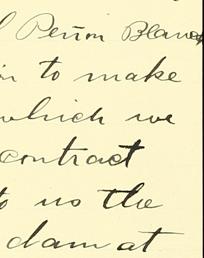 Peñon Blanco
to make
which we
contract
to us the
dam at